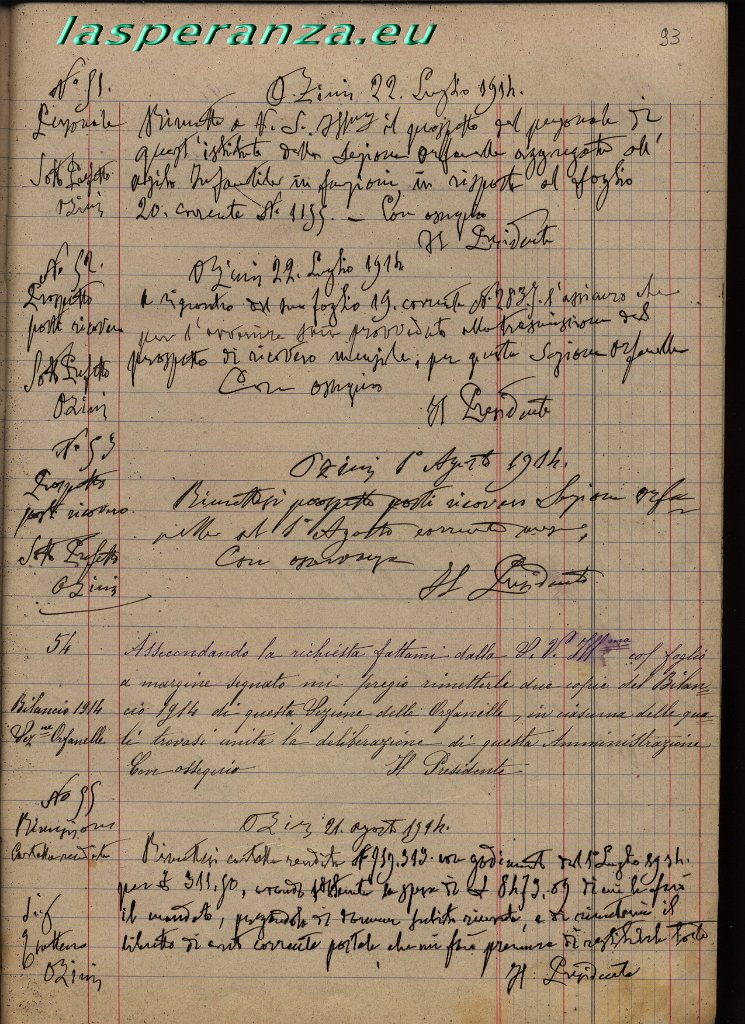 lasperanza.eu
93
No 51.
Ozieri 22. Luglio 1914.
Personale
Rimetto a V. S. Ill il prospetto del personale di
quest'istituto della Sezione Orfanelle aggregata all'
Sotto Prefetto
asilo Infantile in funzioni, in risposta al foglio
Ozieri
20. corrente No 1155. – Con ossequio
Il Presidente
No 52.
Ozieri 22. Luglio 1914
Prospetto
A riscontro del suo foglio 19. corrente No 2837. l'assicuro che
posti ricovero
per l'avvenire sarà provveduto alla trasmissione del
Sotto Prefetto
prospetto di ricovero mensile, per questa Sezione Orfanelle
Con ossequio
Ozieri
Il Presidente
No 53
Ozieri 1° Agosto 1914.
Prospetto
Rimettesi prospetto posti ricovero Sezione Orfa-
posti ricovero
nelle al 1° Agosto corrente mese,
Sotto Prefetto
Con osservanza
Ozieri
Il Presidente
54
Assecondando la richiesta fattami dalla S. V. Ill.ma col foglio
a margine segnato mi pregio rimetterle due copie del Bilan-
Bilancio 1914
cio 1914 di questa Sezione delle Orfanelle, in ciascuna delle qua-
Sez.ne Orfanelle
li trovasi unita la deliberazione di questa Amministrazione
Con ossequio Il Presidente
No 55
Ozieri 21. agosto 1914.
Rimessione
Cartella rendita
Rimettesi cartella rendita No 959.313. con godimento dal 1° Luglio 1914.
per £ 311.50, la spesa di £ 8473.09 di cui le farò
il mandato, pregandola di darmene subito ricevuta, e di rimettermi il
libretto di conto corrente postale, che mi farò premura di restituirle tosto
Ozieri
Il Presidente